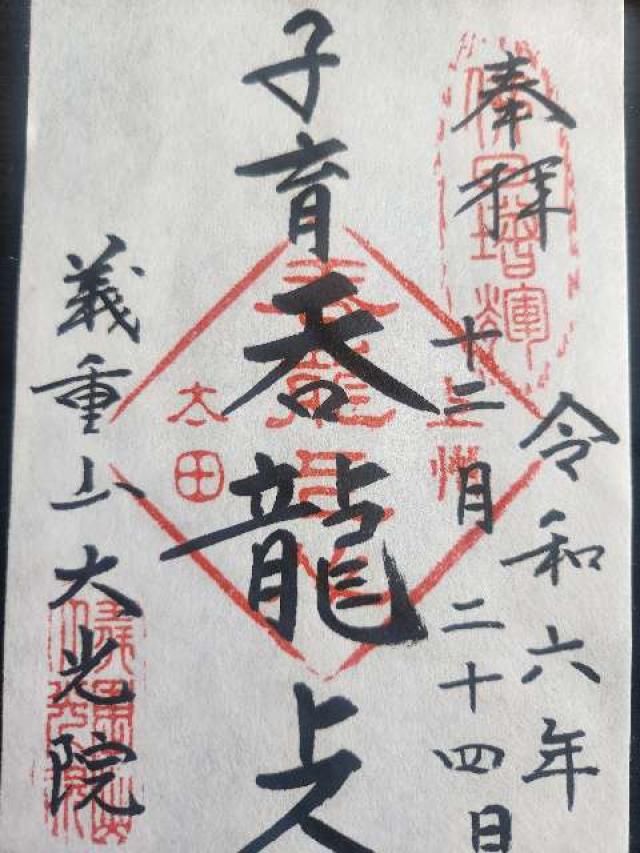 奉拝
令和六年
十二月二十四日
子育呑龍上人
上州
太田
義重山大光院